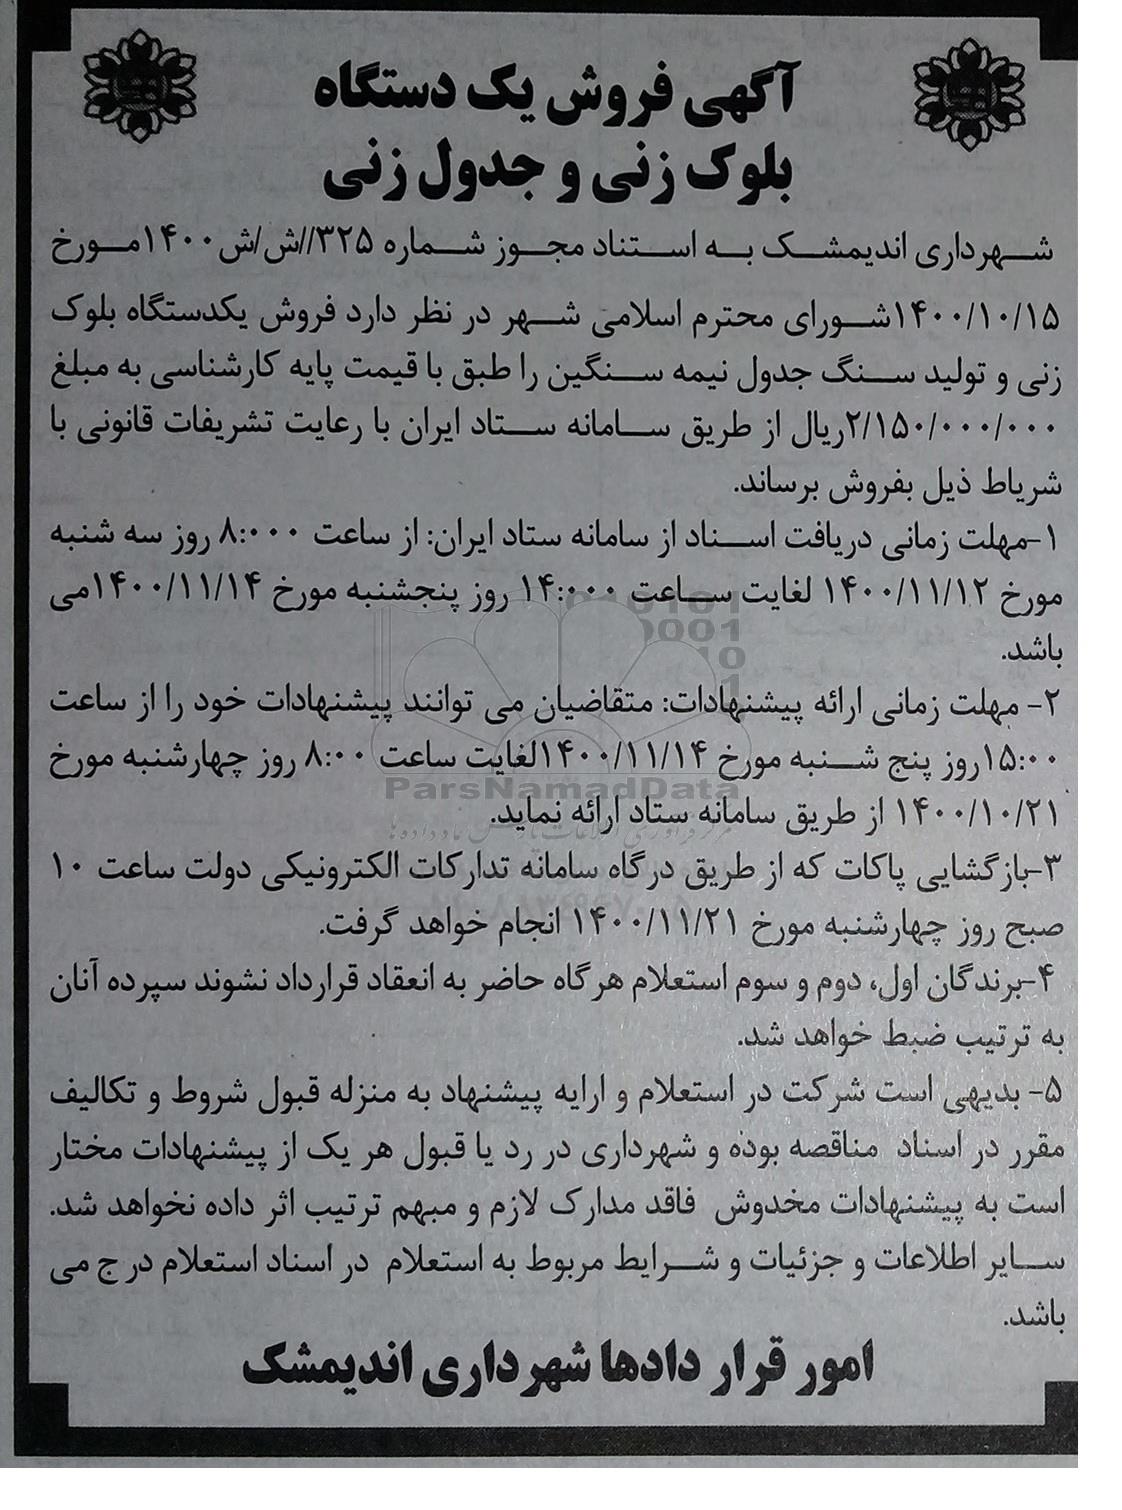 آگهی فروش یک دستگاه
بلوک زنی و جدول زنی
شهرداری اندیمشک به استناد مجوز شماره ۳۲۵//ش/ش۱۴۰۰مورخ
۱۴۰۰/۱۰/۱۵شورای محترم اسلامی شهر در نظر دارد فروش یکدستگاه بلوک
زنی و تولید سنگ جدول نیمه سنگین را طبق با قیمت پایه کارشناسی به مبلغ
۲/۱۵۰/۰۰۰/۰۰۰ریال از طریق سامانه ستاد ایران با رعایت تشریفات قانونی با
شریاط ذیل بفروش برساند.
۱-مهلت زمانی دریافت اسناد از سامانه ستاد ایران: از ساعت ۸:۰۰۰ روز سه شنبه
مورخ ۱۴۰۰/۱۱/۱۲ لغایت ساعت ۱۴:۰۰۰ روز پنجشنبه مورخ ۱۴۰۰/۱۱/۱۴می
باشد.
۲- مهلت زمانی ارائه پیشنهادات: متقاضیان می توانند پیشنهادات خود را از ساعت
۱۵:۰۰روز پنج شنبه مورخ ۱۴۰۰/۱۱/۱۴لغایت ساعت ۸:۰۰ روز چهارشنبه مورخ
ParsNamadData
۱۴۰۰/۱۰/۲۱ از طریق سامانه ستاد ارائه نماید.
۳-بازگشایی پاکات که از طریق درگاه سامانه تدارکات الکترونیکی دولت ساعت ۱۰
صبح روز چهارشنبه مورخ ۱۴۰۰/۱۱/۲۱ انجام خواهد گرفت.
۴-برندگان اول، دوم و سوم استعلام هرگاه حاضر به انعقاد قرارداد نشوند سپرده آنان
به ترتیب ضبط خواهد شد.
۵- بدیهی است شرکت در استعلام و ارایه پیشنهاد به منزله قبول شروط و تکالیف
مقرر در اسناد مناقصه بوده و شهرداری در رد یا قبول هر یک از پیشنهادات مختار
است به پیشنهادات مخدوش فاقد مدارک لازم و مبهم ترتیب اثر داده نخواهد شد.
سایر اطلاعات و جزئیات و شرایط مربوط به استعلام در اسناد استعلام درج می
باشد.
امور قرار دادها شهرداری اندیمشک